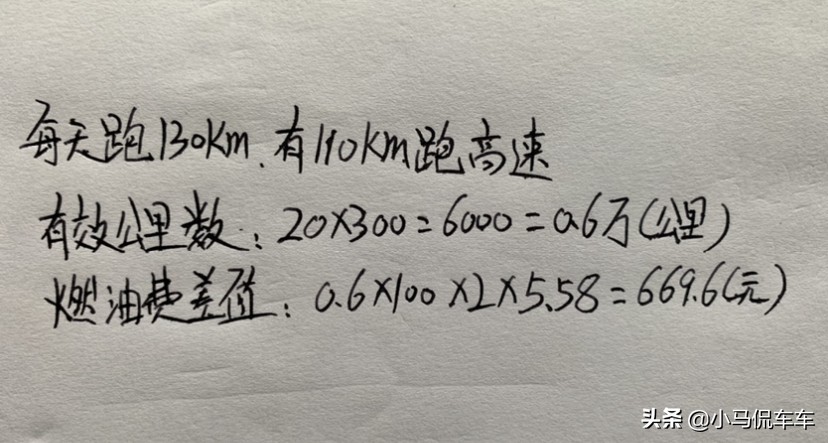 每天跑130Km.有110Km跑高速
有效公里数：20×300=6000=0.6万(公里)
燃油费差值：0.6×100×2×5.58=669.6(元)
头条 @小马侃车车